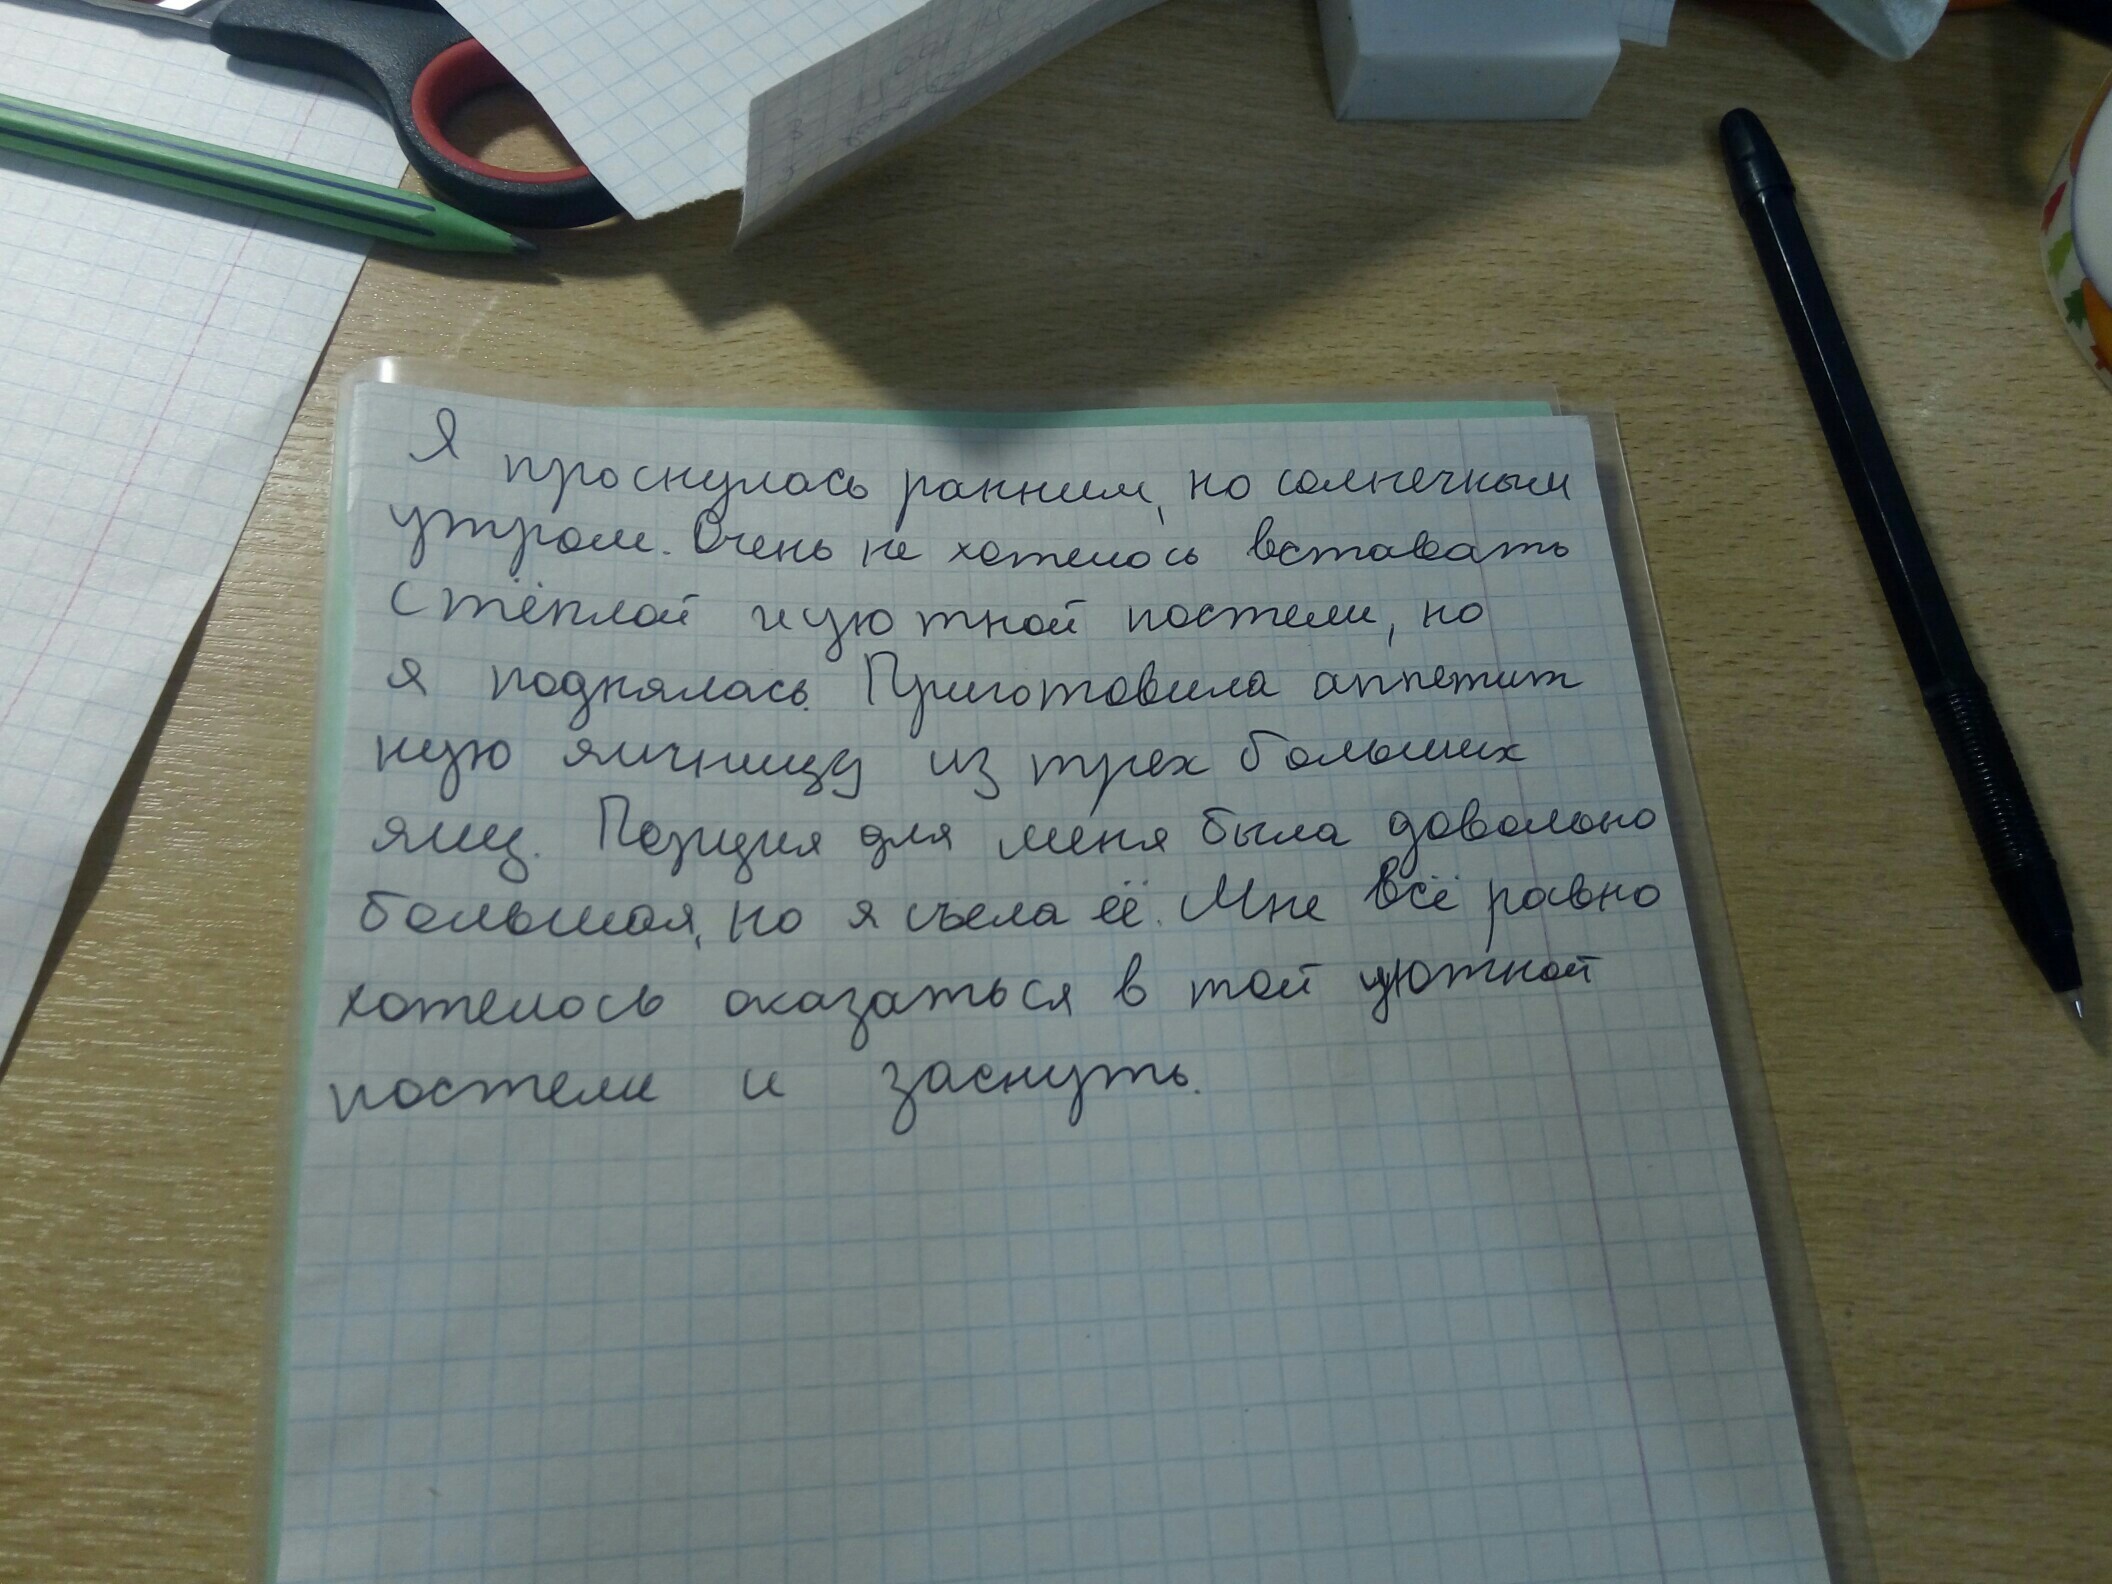 Я проснулась ранним, но солнечным
утром. Очень не хотелось вставать
с тёплой и уютной постели, но
я поднялась. Приготовила аппетит
ную яичницу из трех больших
яиц. Порция для меня была довольно
большая, но я съела её. Мне всё равно
хотелось оказаться в той уютной
постели и заснуть.